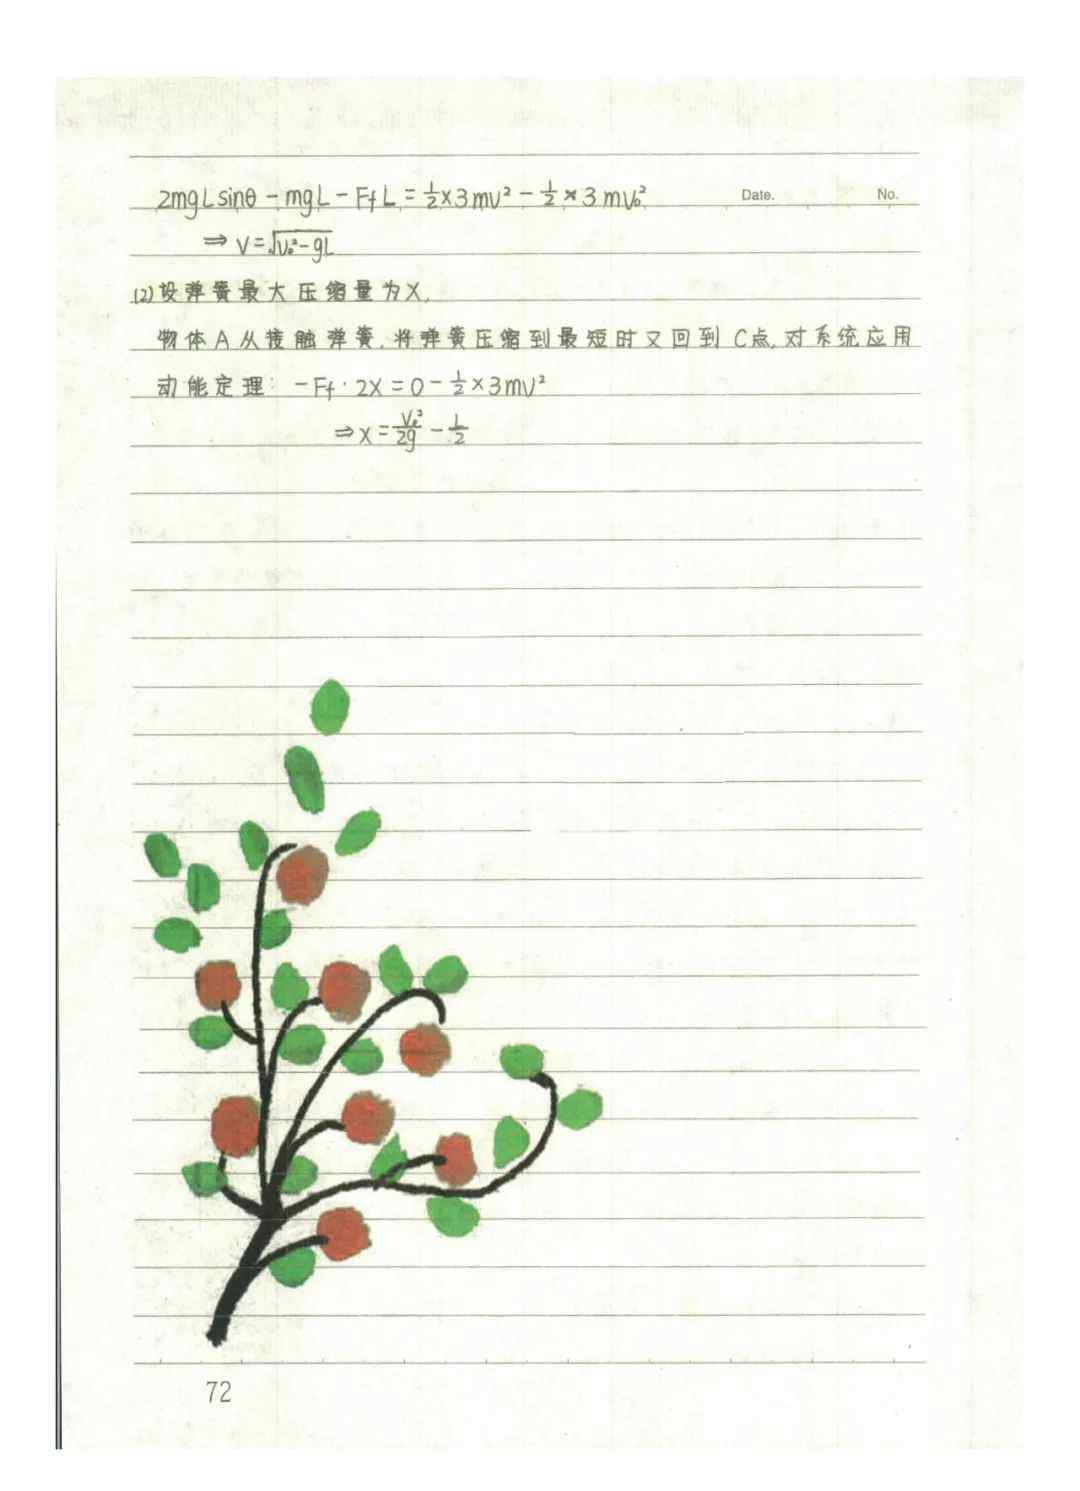 2mgLsinθ - mgL - FfL = 1/2 × 3mv² - 1/2 × 3mv₀²
Date. No.
⇒ v = √(v₀² - gL)
(2) 设弹簧最大压缩量为X,
物体A从接触弹簧,将弹簧压缩到最短时又回到C点,对系统应用
动能定理: -Ff · 2X = 0 - 1/2 × 3mv²
⇒ X = v₀²/2g - L/2
72